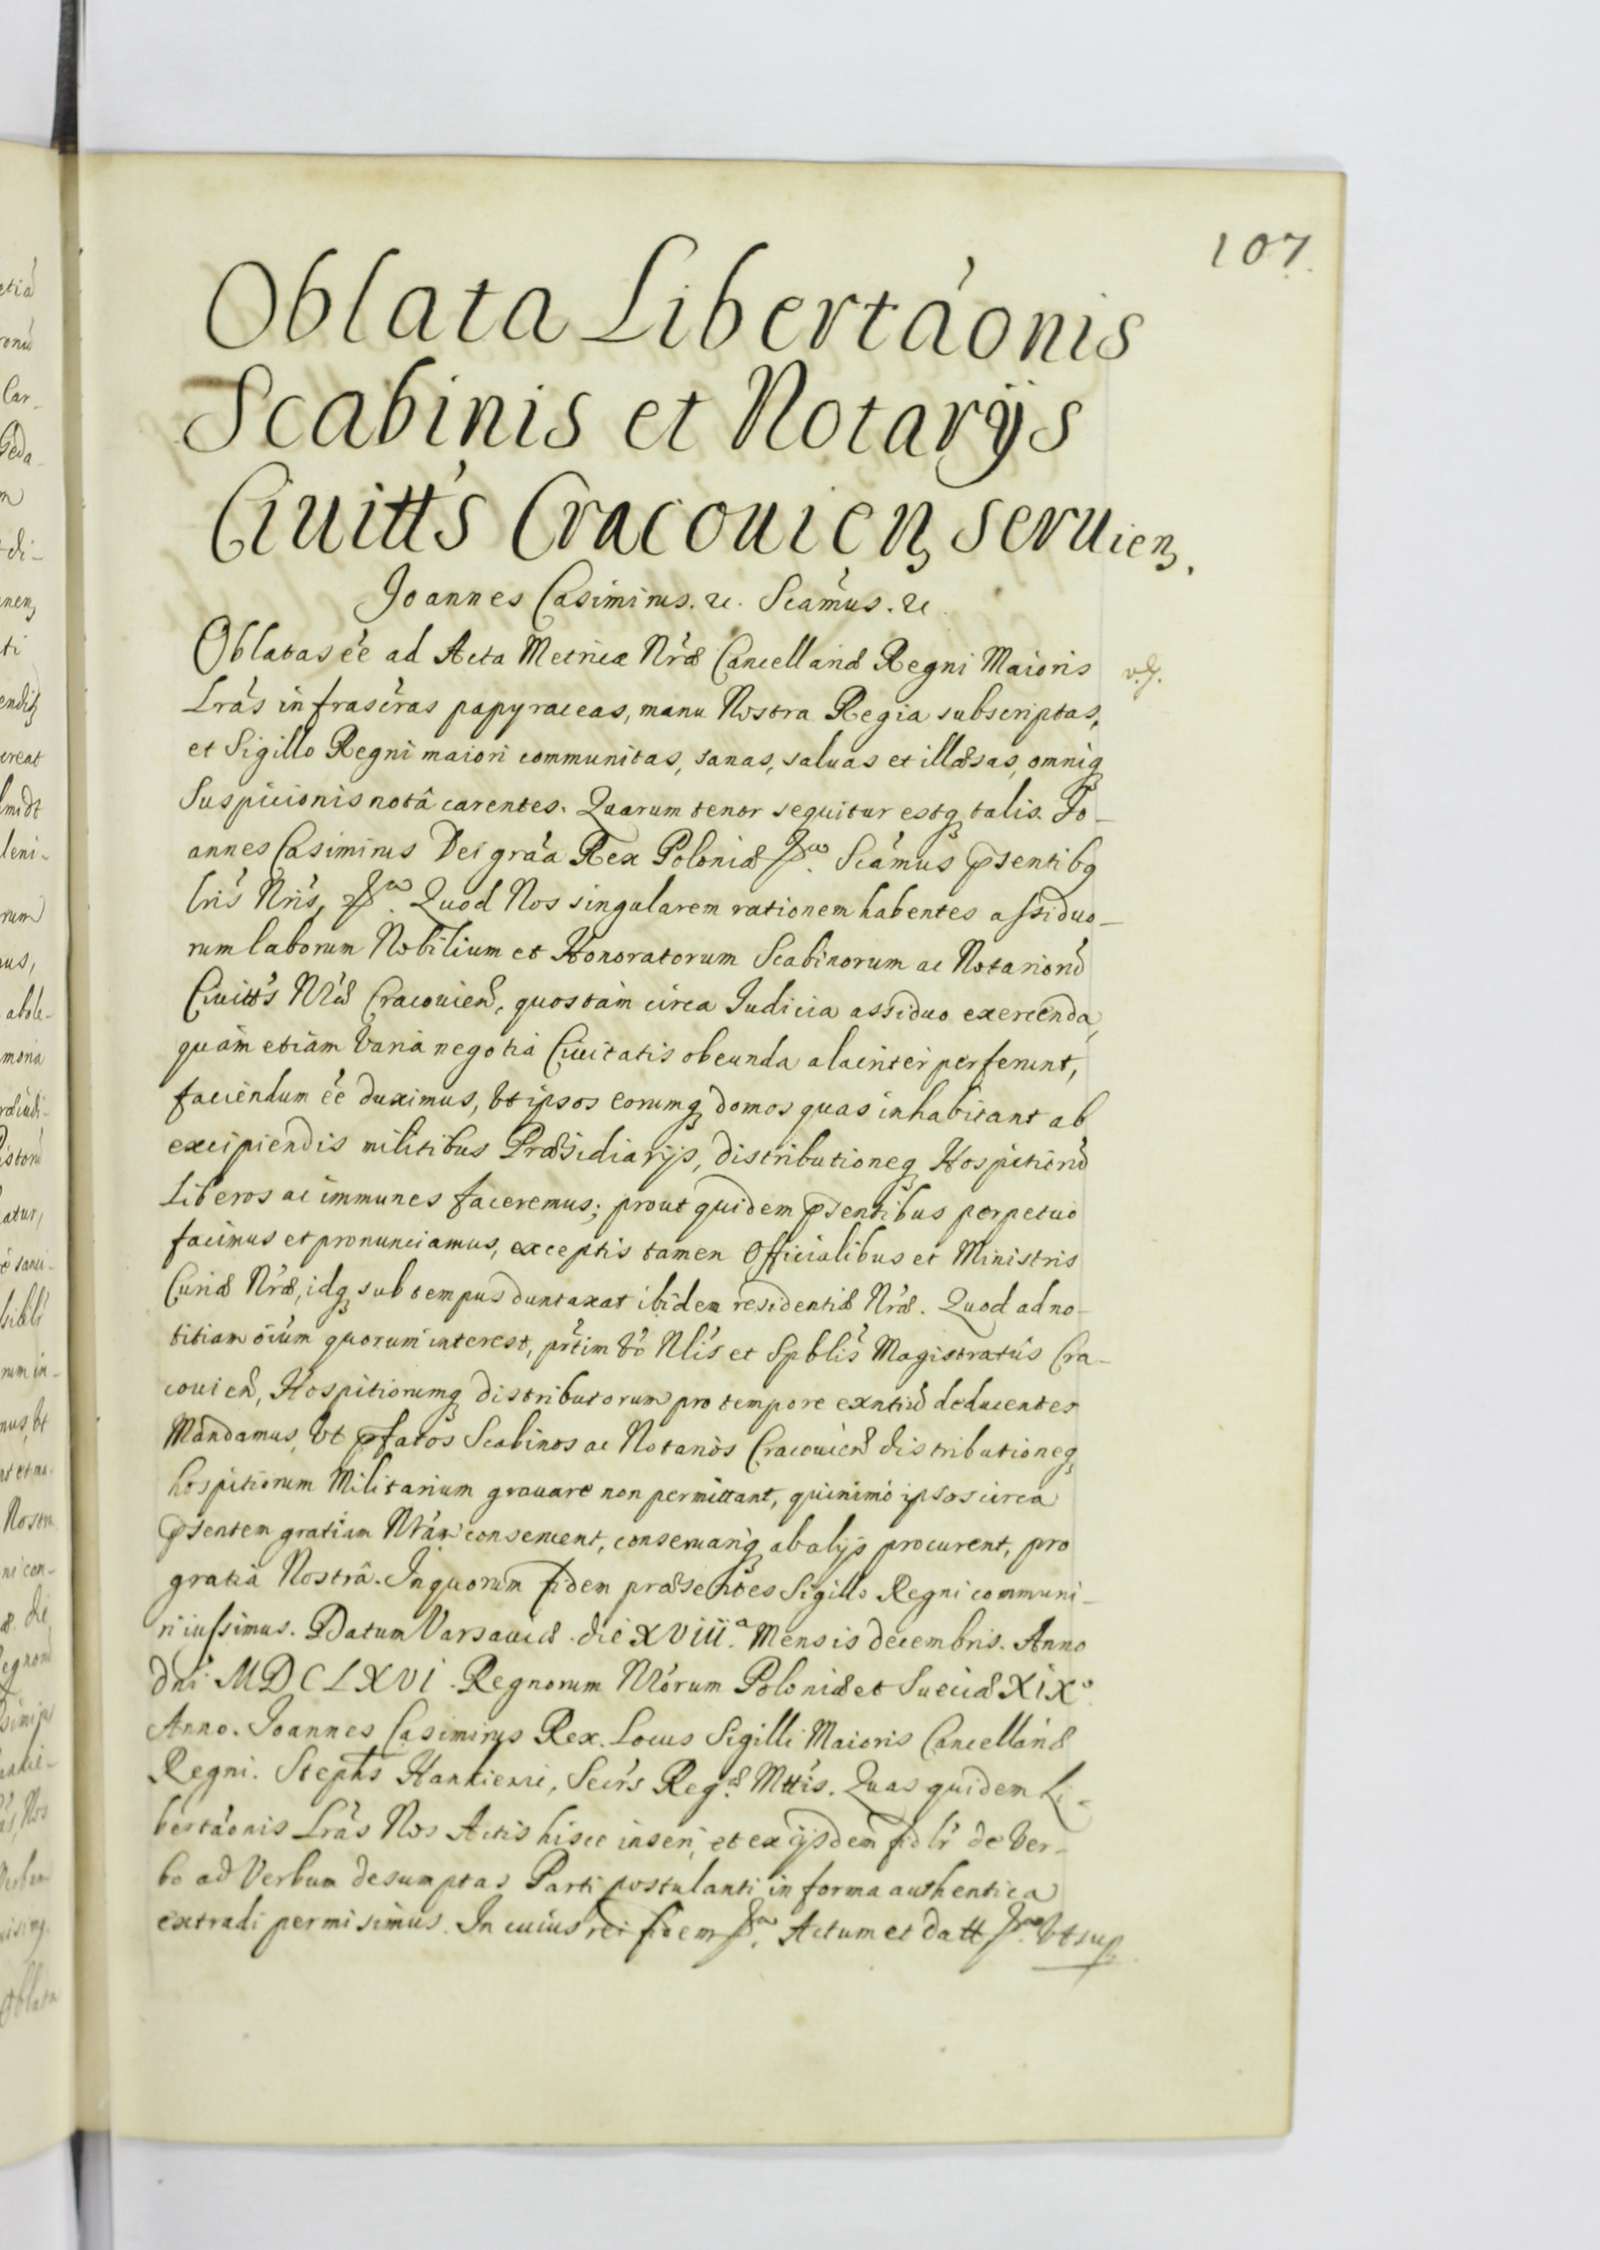 107.
Oblata Libertãonis
Scabinis et Notarÿs
Ciuitt's Cracouieñ seruieñ.
Joannes Casimirus. &c. Scãmus. &c.
Oblatas eẽ ad Acta Metricæ Nrã Cancellariæ Regni Maioris
Lrãs infrascr̃as papyraceas, manu Nostra Regia subscriptas,
et Sigillo Regni maiori communitas, sanas, saluas et illæsas, omniq
suspicionis notâ carentes. Quarum tenor sequitur estq talis. Jo-
annes Casimirus Dei grãa Rex Poloniæ Scãmus pſentibq
lris Nris, Quod Nos singularem rationem habentes aſsiduo-
rum laborum Nobilium et Honoratorum Scabinorum ac Notariorũ
Ciuitt's Nræ Cracouieñ, quos tàm circa Judicia assiduo exercenda,
quàm etiàm varia negotia Ciuitatis obeunda alacriter perferunt,
faciendum eẽ duximus, vt ipsos eorumq domos quas inhabitant ab
excipiendis militibus Præsidiarijs, distributioneq Hospitiorũ
liberos ac immunes faceremus; prout quidem psentibus perpetuo
facimus et pronunciamus, exceptis tamen Officialibus et Ministris
Curiæ Nræ, idq sub tempus duntaxat ibidem residentiæ Nræ. Quod ad no-
titiam oium quorum interest, prtim vo Nlis et Spblis Magistratûs Cra-
couieñ, Hospitiorumq distributorum pro tempore exntiũ deducentes
Mandamus, vt pfatos Scabinos ac Notarios Cracouieñ distributioneq
hospitiorum Militarium grauare non permittant, quinimò ipsos circa
psentem gratiam Nrãm conseruent, conseruariq ab alijs procurent, pro
gratiâ Nostrâ. In quorum fidem præsentes Sigillo Regni communi-
ri iuſsimus. Datum Varsauiæ die XViii.a Mensis decembris. Anno
dni MDCLXVI. Regnorum Nrorum Poloniæ et Sueciæ XiXo.
Anno. Joannes Casimirus Rex. Locus Sigilli Maioris Cancellariæ
Regni. Stephs Hankiewi, Secrs Reg.æ Mttis. Quas quidem Li-
bertãonis Lrãs Nos Actis hisce inseri, et ex ijsdem fidlr de Ver-
bo ad Verbum desumptas Parti postulanti in forma authentica
extradi permisimus. In cuius rei fidem Actum et datt vt sup